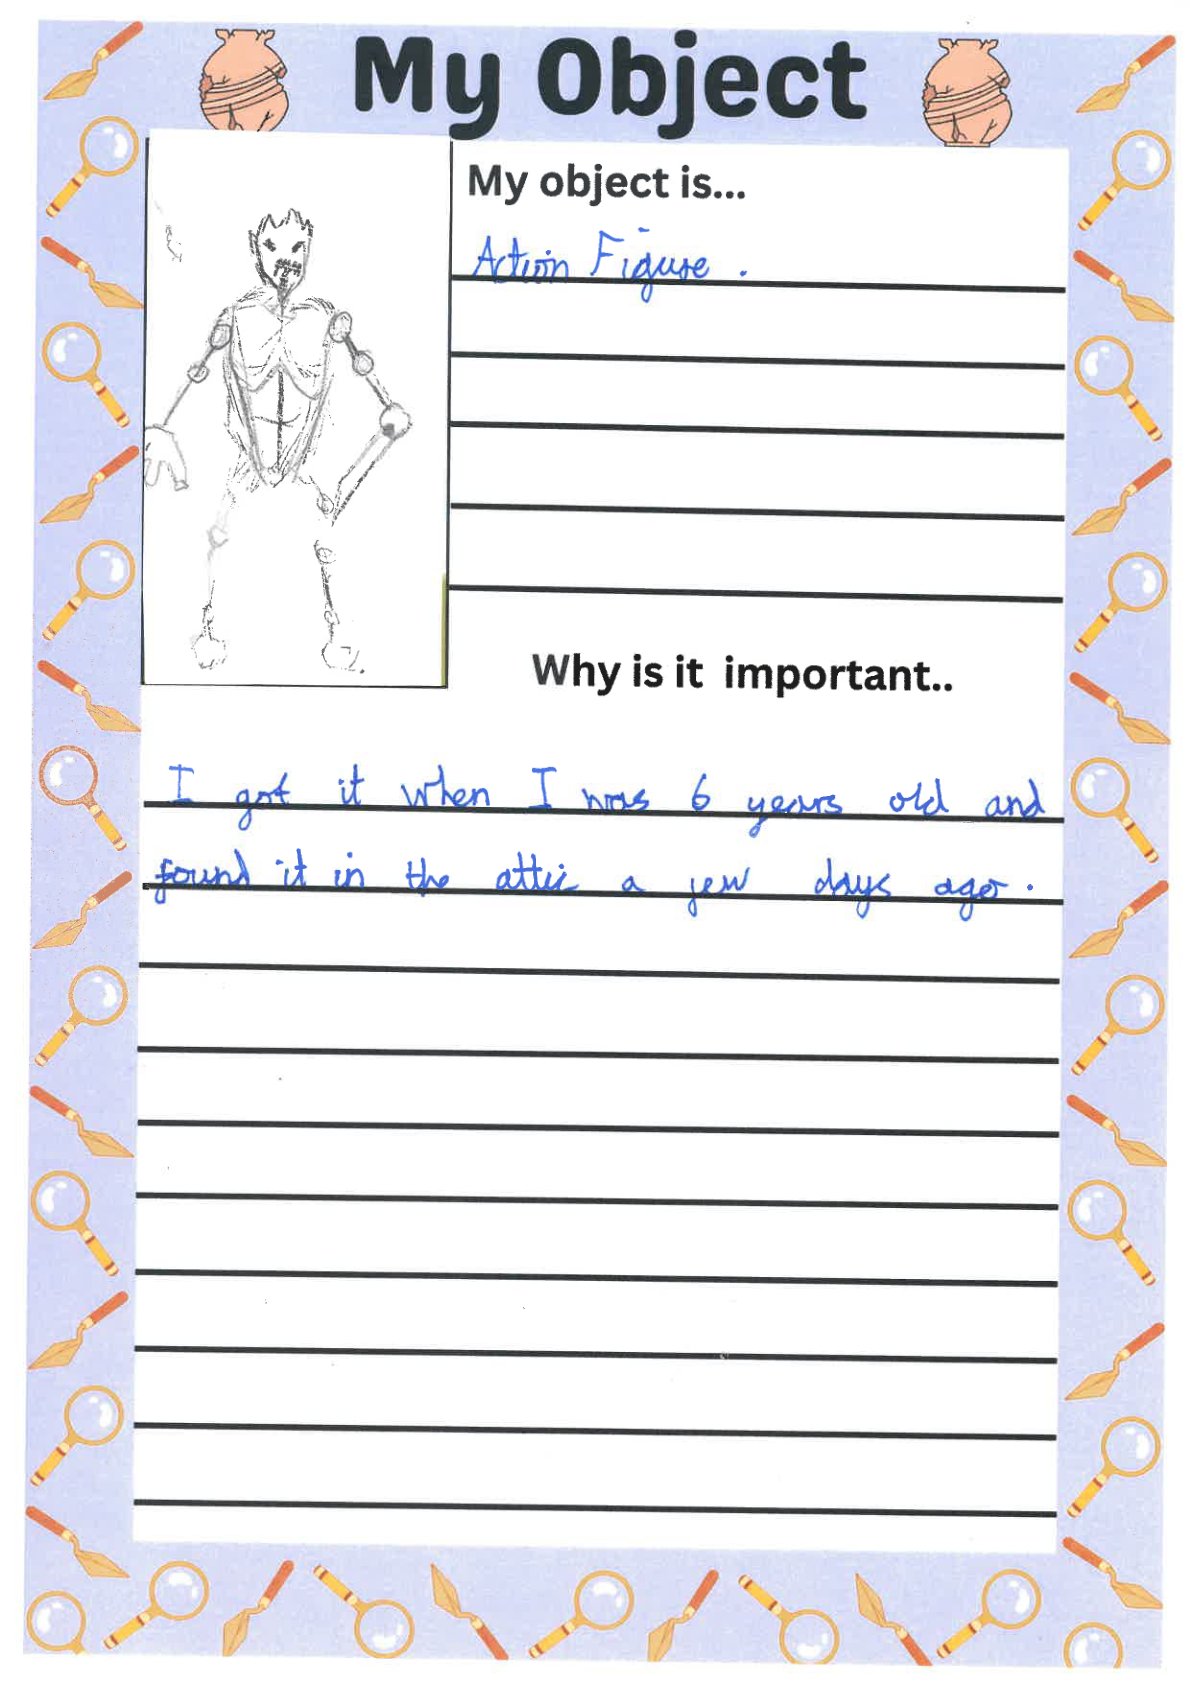 My Object
My object is...
Action Figure.
Why is it important..
I got it when I was 6 years old and
found it in the attic a few days ago.